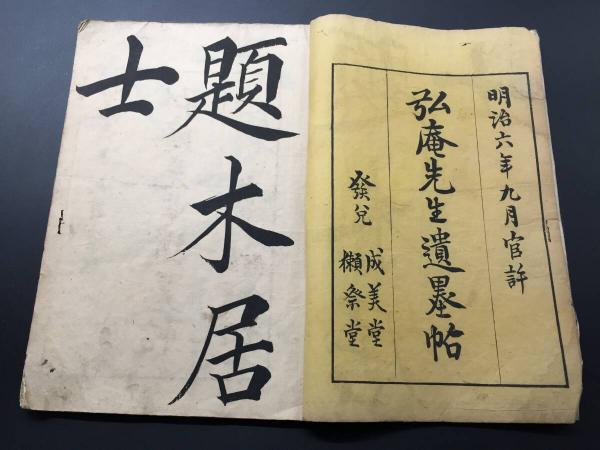 明治六年九月官許
弘庵先生遺墨帖
發兌
成美堂
獺祭堂
題木居
士